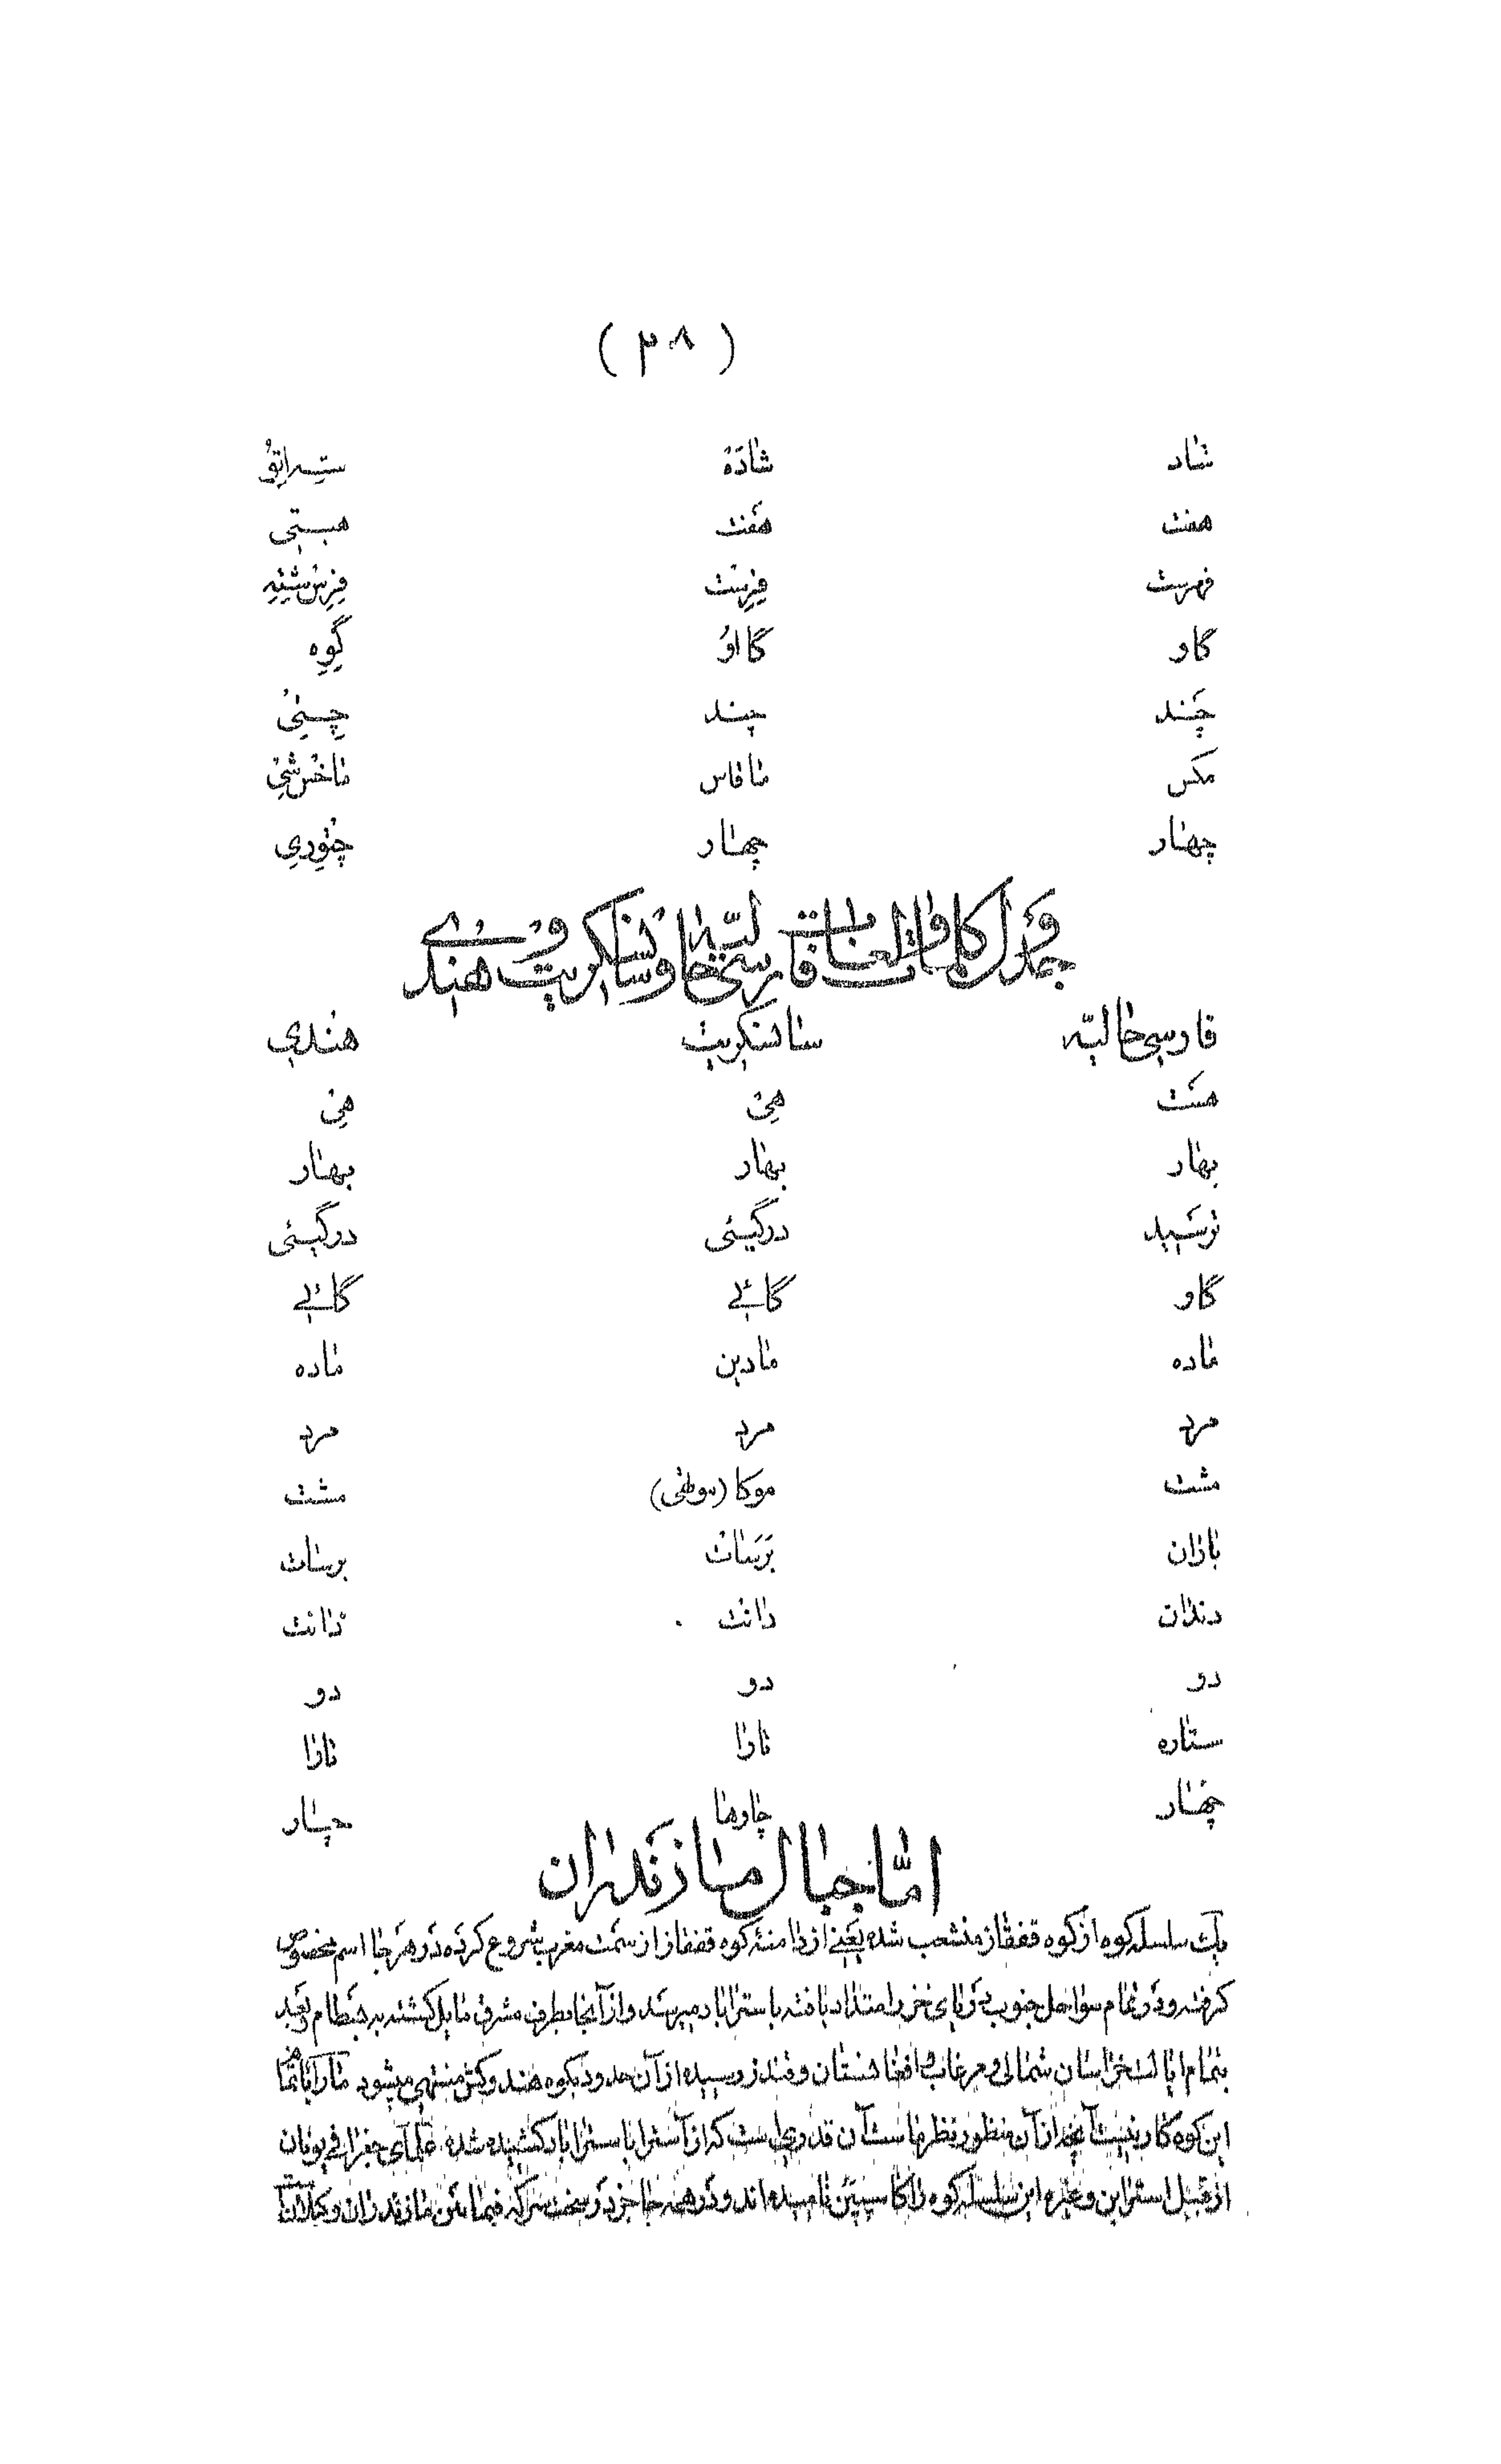 ( ۳۸ )
شاد شادَهْ ستِراتوُ
هفت هَفت هبتی
فهرست فِرِسْت فِرِسْشتِهِ
گاو گااوُ گِوِه
چَند چند چِنِیْ
مکس ماقاس ماخْسْشیْ
چهار چهار چِتْوِرِی
جدول کلمات و لغات فارسی حالیّه و سانسکریت و هندی
فارسی حالیّه سانسکریت هندی
هست هِیْ هِیْ
بهار بهار بهار
ترسید درگیئی درگیئی
گاو گائے گائے
ماده مادین ماده
مرد مرد مرد
مشت موکا (موطی) مشت
باران بَرَسات برسات
دندان دانت دانت
دو دو دو
ستاره تارا تارا
چهار چارها چار
امّا جبال مازندران
یک سلسله کوه از کوه قفقاز منشعب شده یعنی از دامنهٔ کوه قفقاز از سمت مغرب شروع کرده در هر جا اسم مخصوص
گرفته و در تمام سواحل جنوب دریای خزر امتداد یافته باسترآباد میرسد و از آنجا بطرف مشرق مایل گشته به بسطام و بعد
بتمام ایالت خراسان شمالی و مرغاب و افغانستان و قندز رسیده از آن حدود بکوه هندوکش منتهی میشود ما را با تمام
این کوه کار نیست آنچه از آن منظور نظر ماست آن قدری است که از آستارا باسترآباد کشیده شده علمای جغرافی یونان
از قبیل استرابن و غیره این سلسله کوه را کاسپین نامیده‌اند و در همه جا جز در سخت سر که فیمابین مازندران و گیلان است